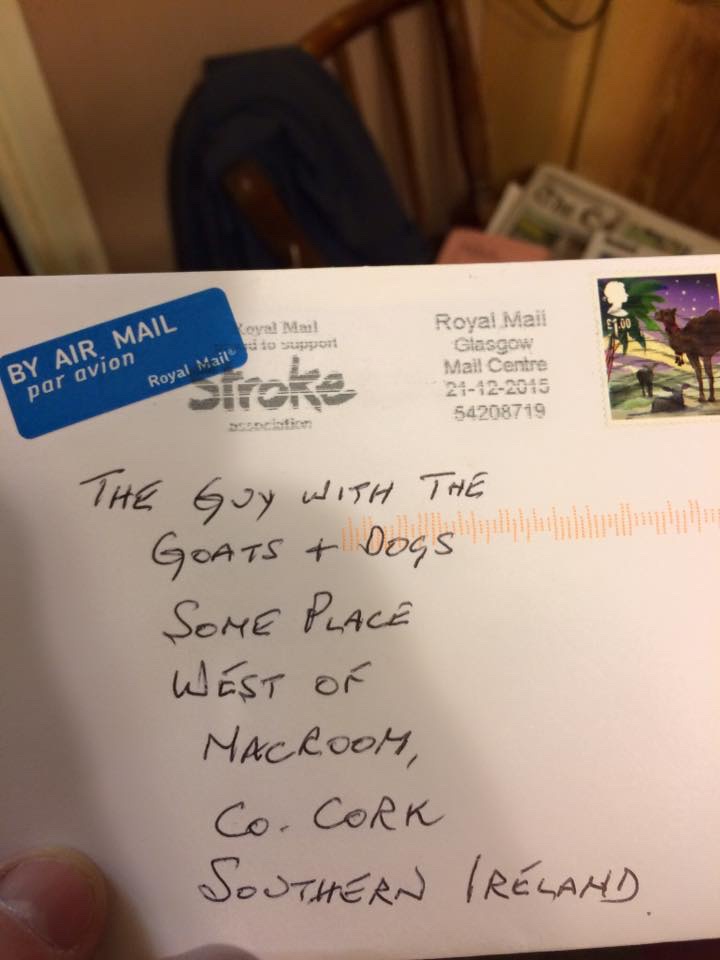 BY AIR MAIL
par avion
Royal Mail®
Royal Mail
to support
Stroke
association
Royal Mail
Glasgow
Mail Centre
21-12-2015
54208719
£1.00
THE GUY WITH THE
GOATS + DOGS
SOME PLACE
WEST OF
MACROOM,
CO. CORK
SOUTHERN IRELAND.